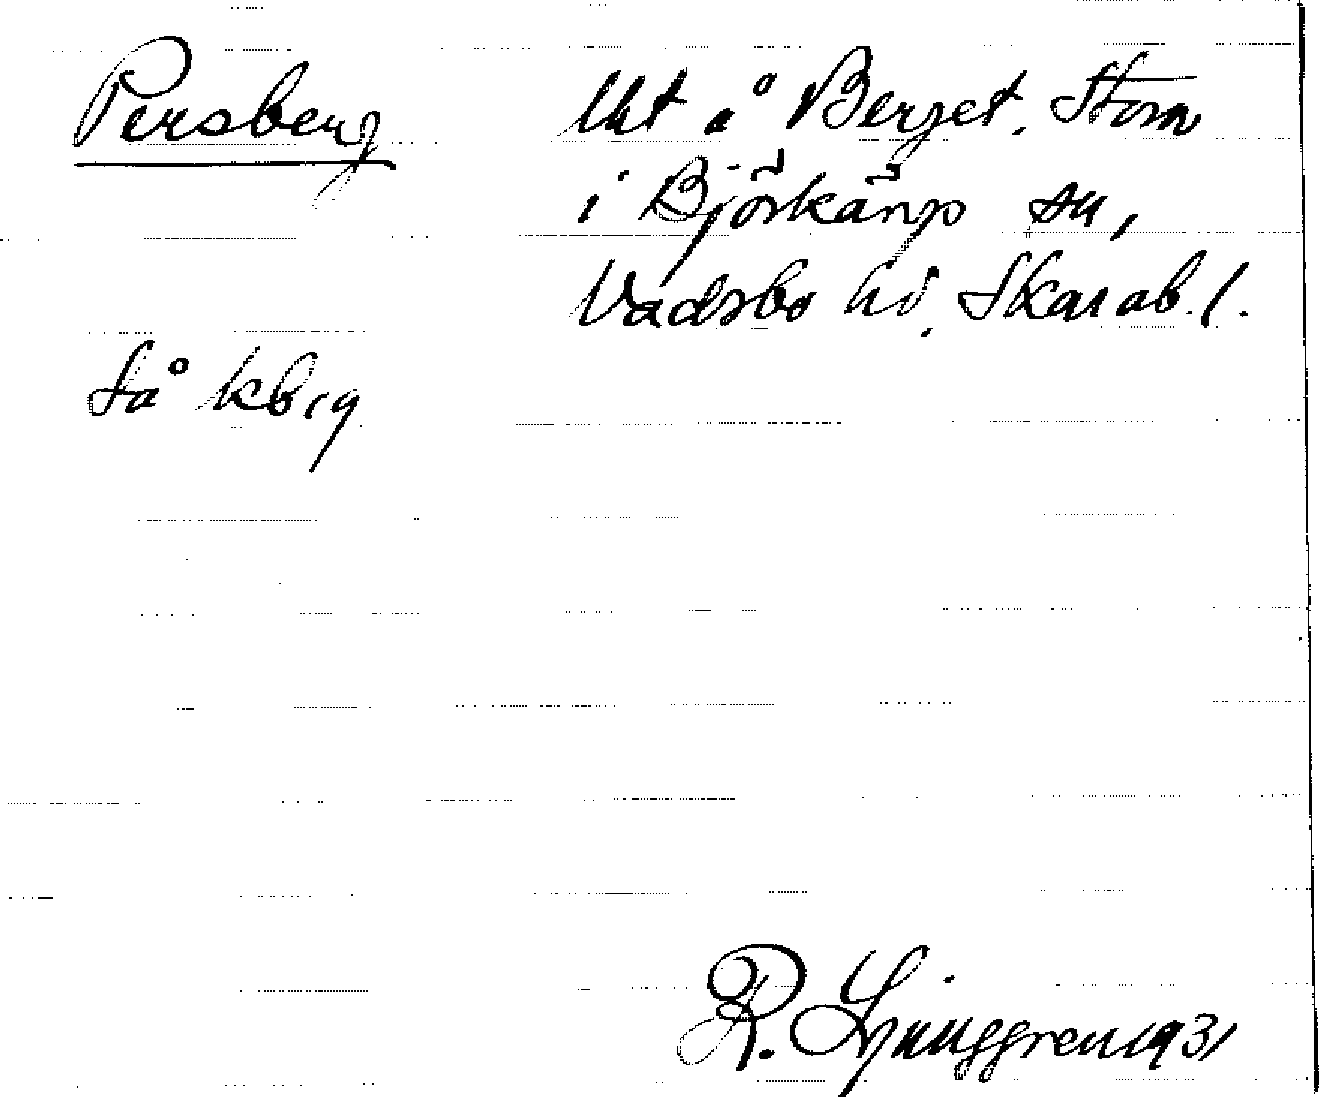 Persberg
Utt å Berget, Stom
i Björkängs sn,
Vadsbo hd, Skarab. l.
Så kbg
R. Ljunggren 1931